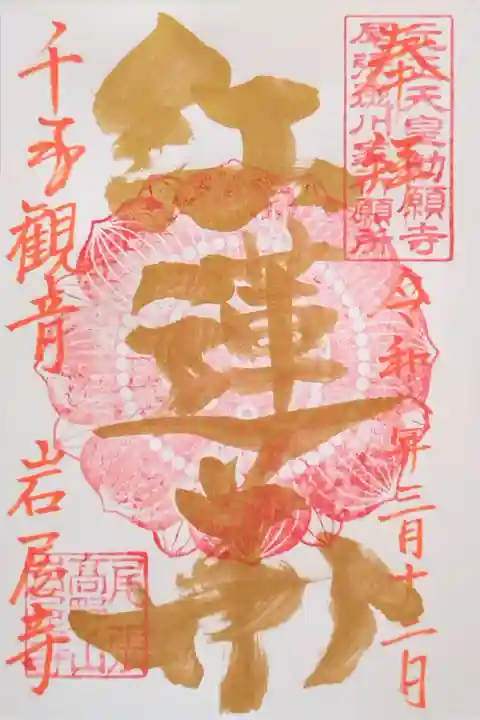 元正天皇勅願寺
尾張徳川家祈願所
奉拝
令和八年三月十二日
紅蓮
千手觀音 岩屋寺
尾張
高山